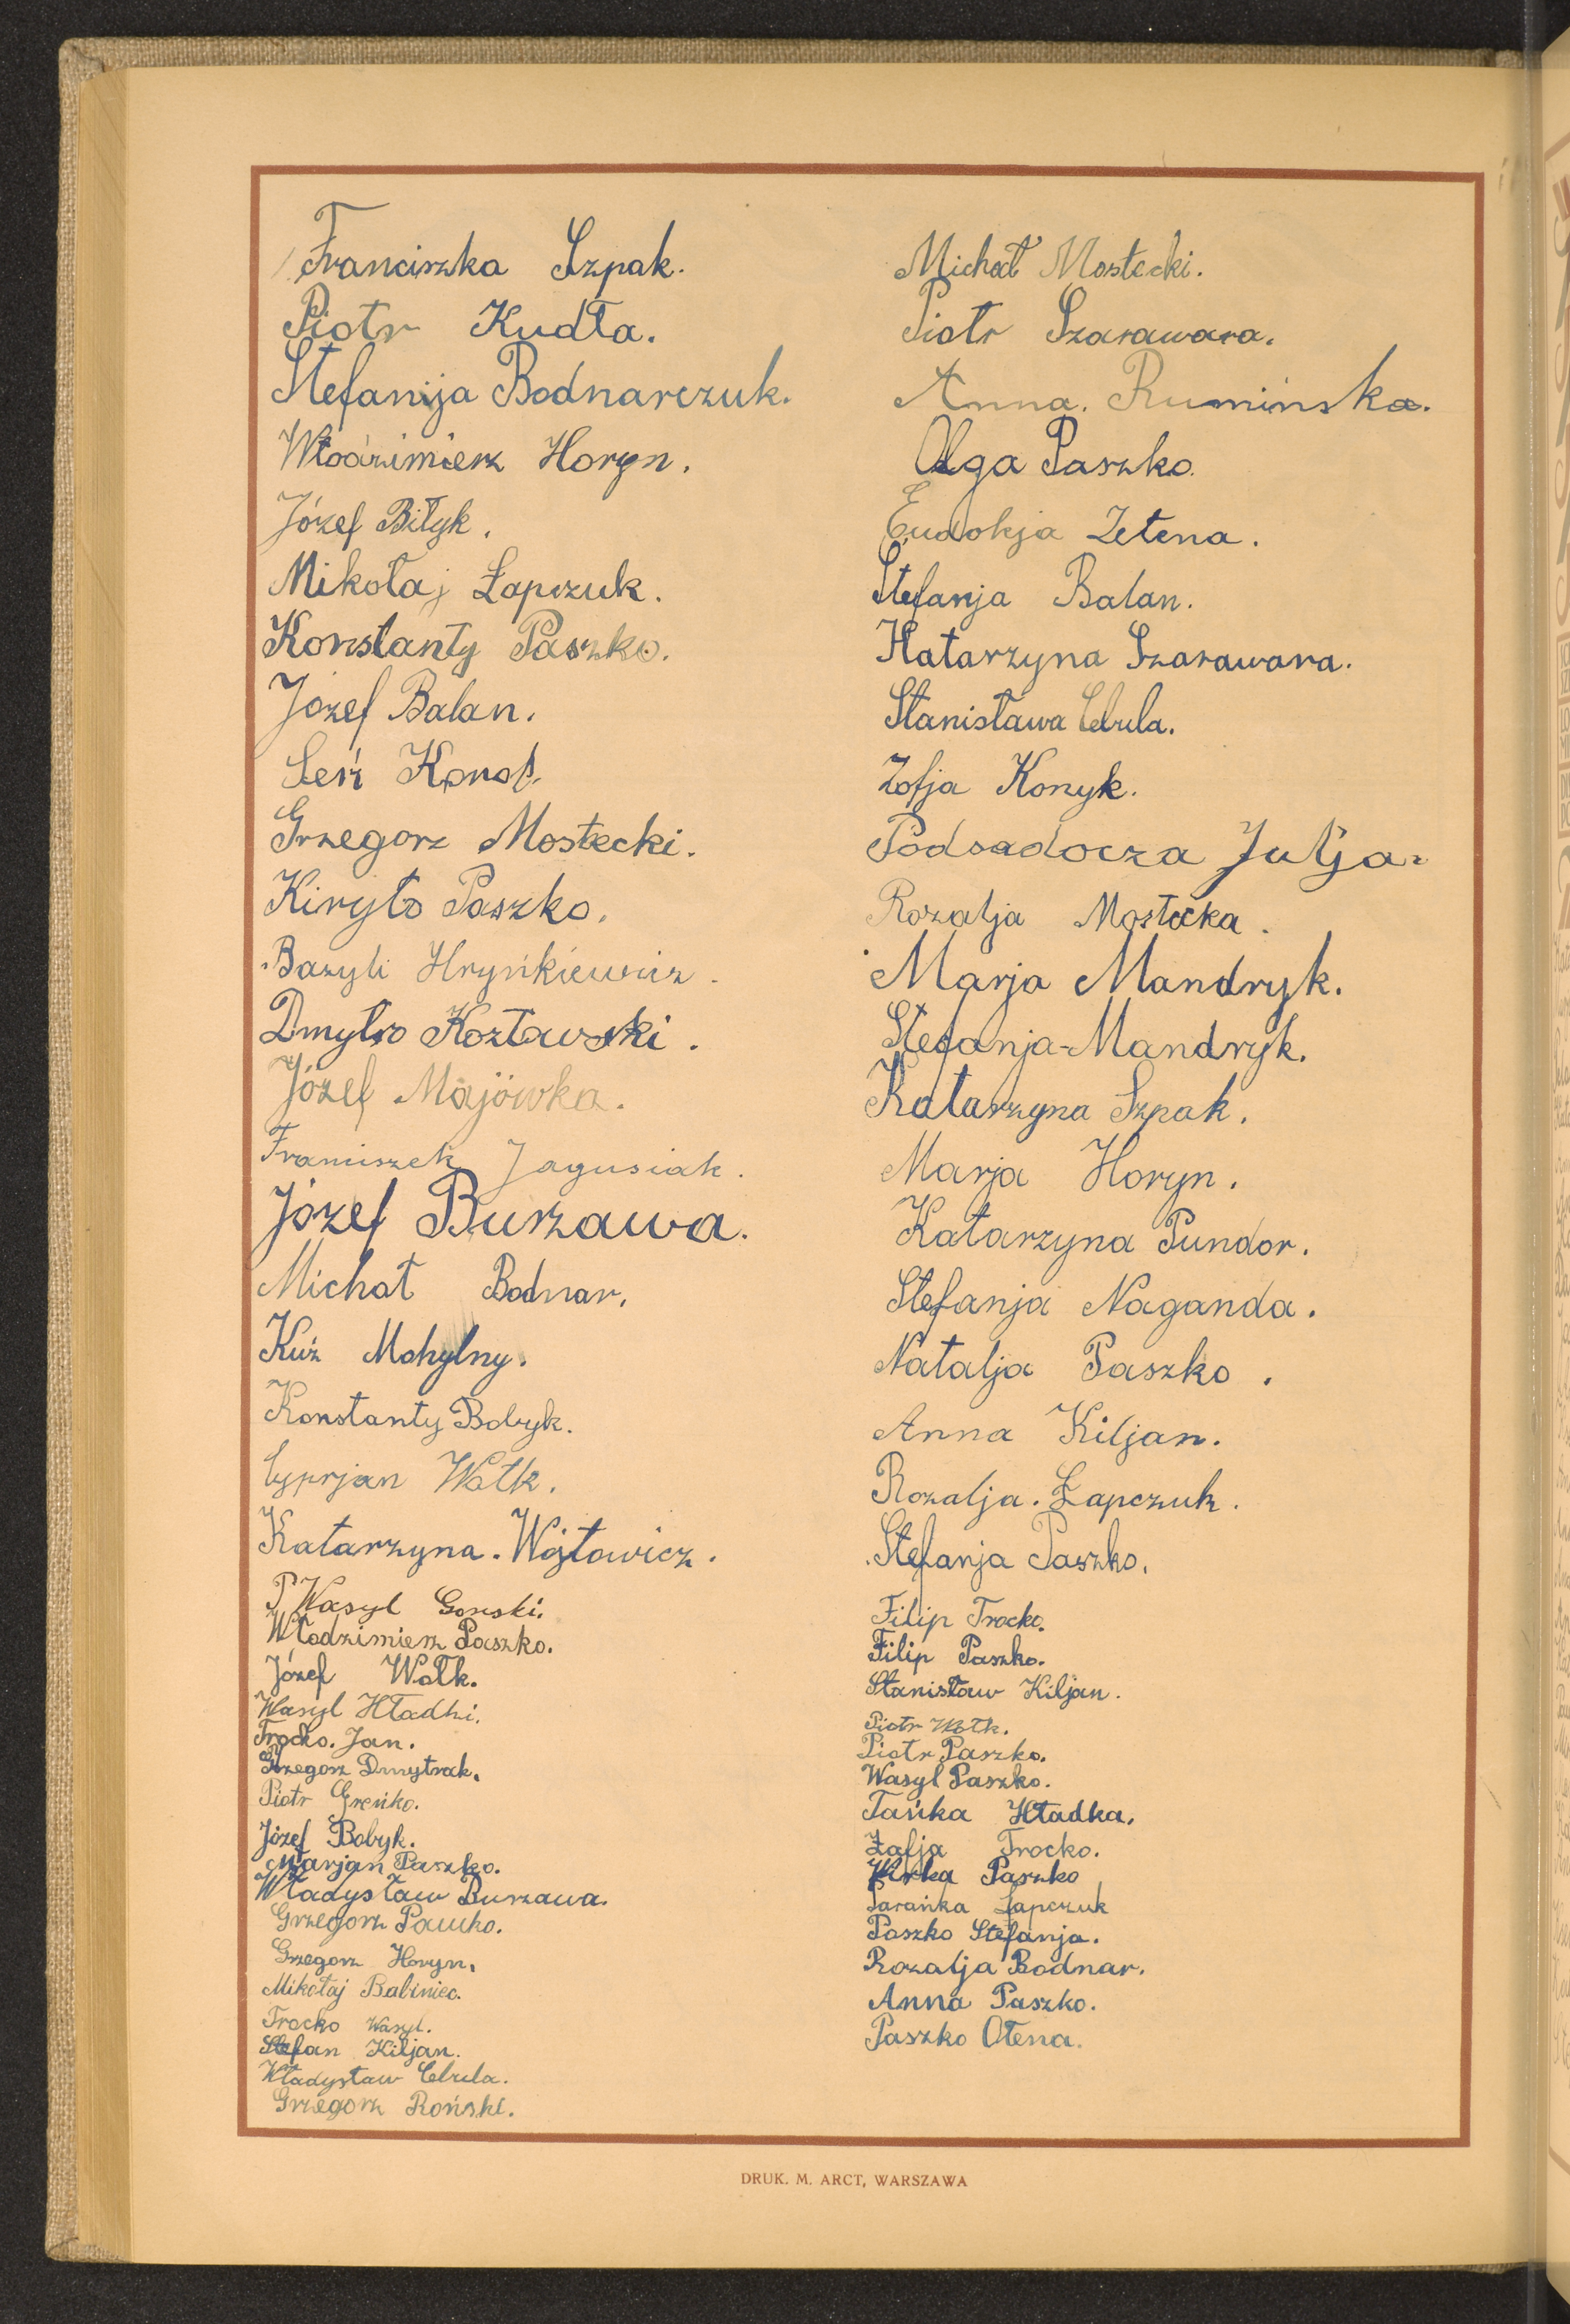 Franciszka Szpak.
Piotr Kudła.
Stefanija Bodnarczuk.
Włodzimierz Horyn.
Józef Biłyk.
Mikołaj Łapczuk.
Konstanty Paszko.
Józef Balan.
Seń
Grzegorz Mostecki.
Kiryło Paszko.
Bazyli Hryńkiewicz.
Dmytro Kozławski.
Józef Majówka.
Franciszek Jagusiak.
Józef Burzawa.
Michał Bodnar.
Kuź Mohylny.
Konstanty Bobyk.
Cyprjan Wołk.
Katarzyna. Wojtowicz.
Wasyl Gorski.
Włodzimierz Paszko.
Józef Wołk.
Wasyl Hładki.
Trocko. Jan.
Grzegorz Dmytrak.
Piotr Greńko.
Józef Bobyk.
Marjan Paszko.
Władysław Burzawa.
Grzegorz Pawko.
Grzegorz Horyn.
Mikołaj Babiniec.
Trocko Wasyl.
Stefan Kiljan.
Władysław Cebula.
Grzegorz Roński.
Michał Mostecki.
Piotr Szarawara.
Anna. Rumińska.
Olga Paszko.
Eudokja Zetena.
Stefanja Balan.
Katarzyna Szarawara.
Stanisława Cebula.
Zofja Konyk.
Podsadocza Julja.
Rozalja Mostecka.
Marja Mandryk.
Stefanja-Mandryk.
Katarzyna Szpak.
Marja Horyn.
Katarzyna Pundor.
Stefanja Naganda.
Natalja Paszko.
Anna Kiljan.
Rozalja. Łapczuk.
Stefanja Paszko.
Filip Trocko.
Filip Paszko.
Stanisław Kiljan.
Piotr Wołk.
Piotr Paszko.
Wasyl Paszko.
Tańka Hładka.
Zofja Trocko.
Paszko
Parańka Łapczuk
Paszko Stefanja.
Rozalja Bodnar.
Anna Paszko.
Paszko Ołena.
DRUK. M. ARCT, WARSZAWA